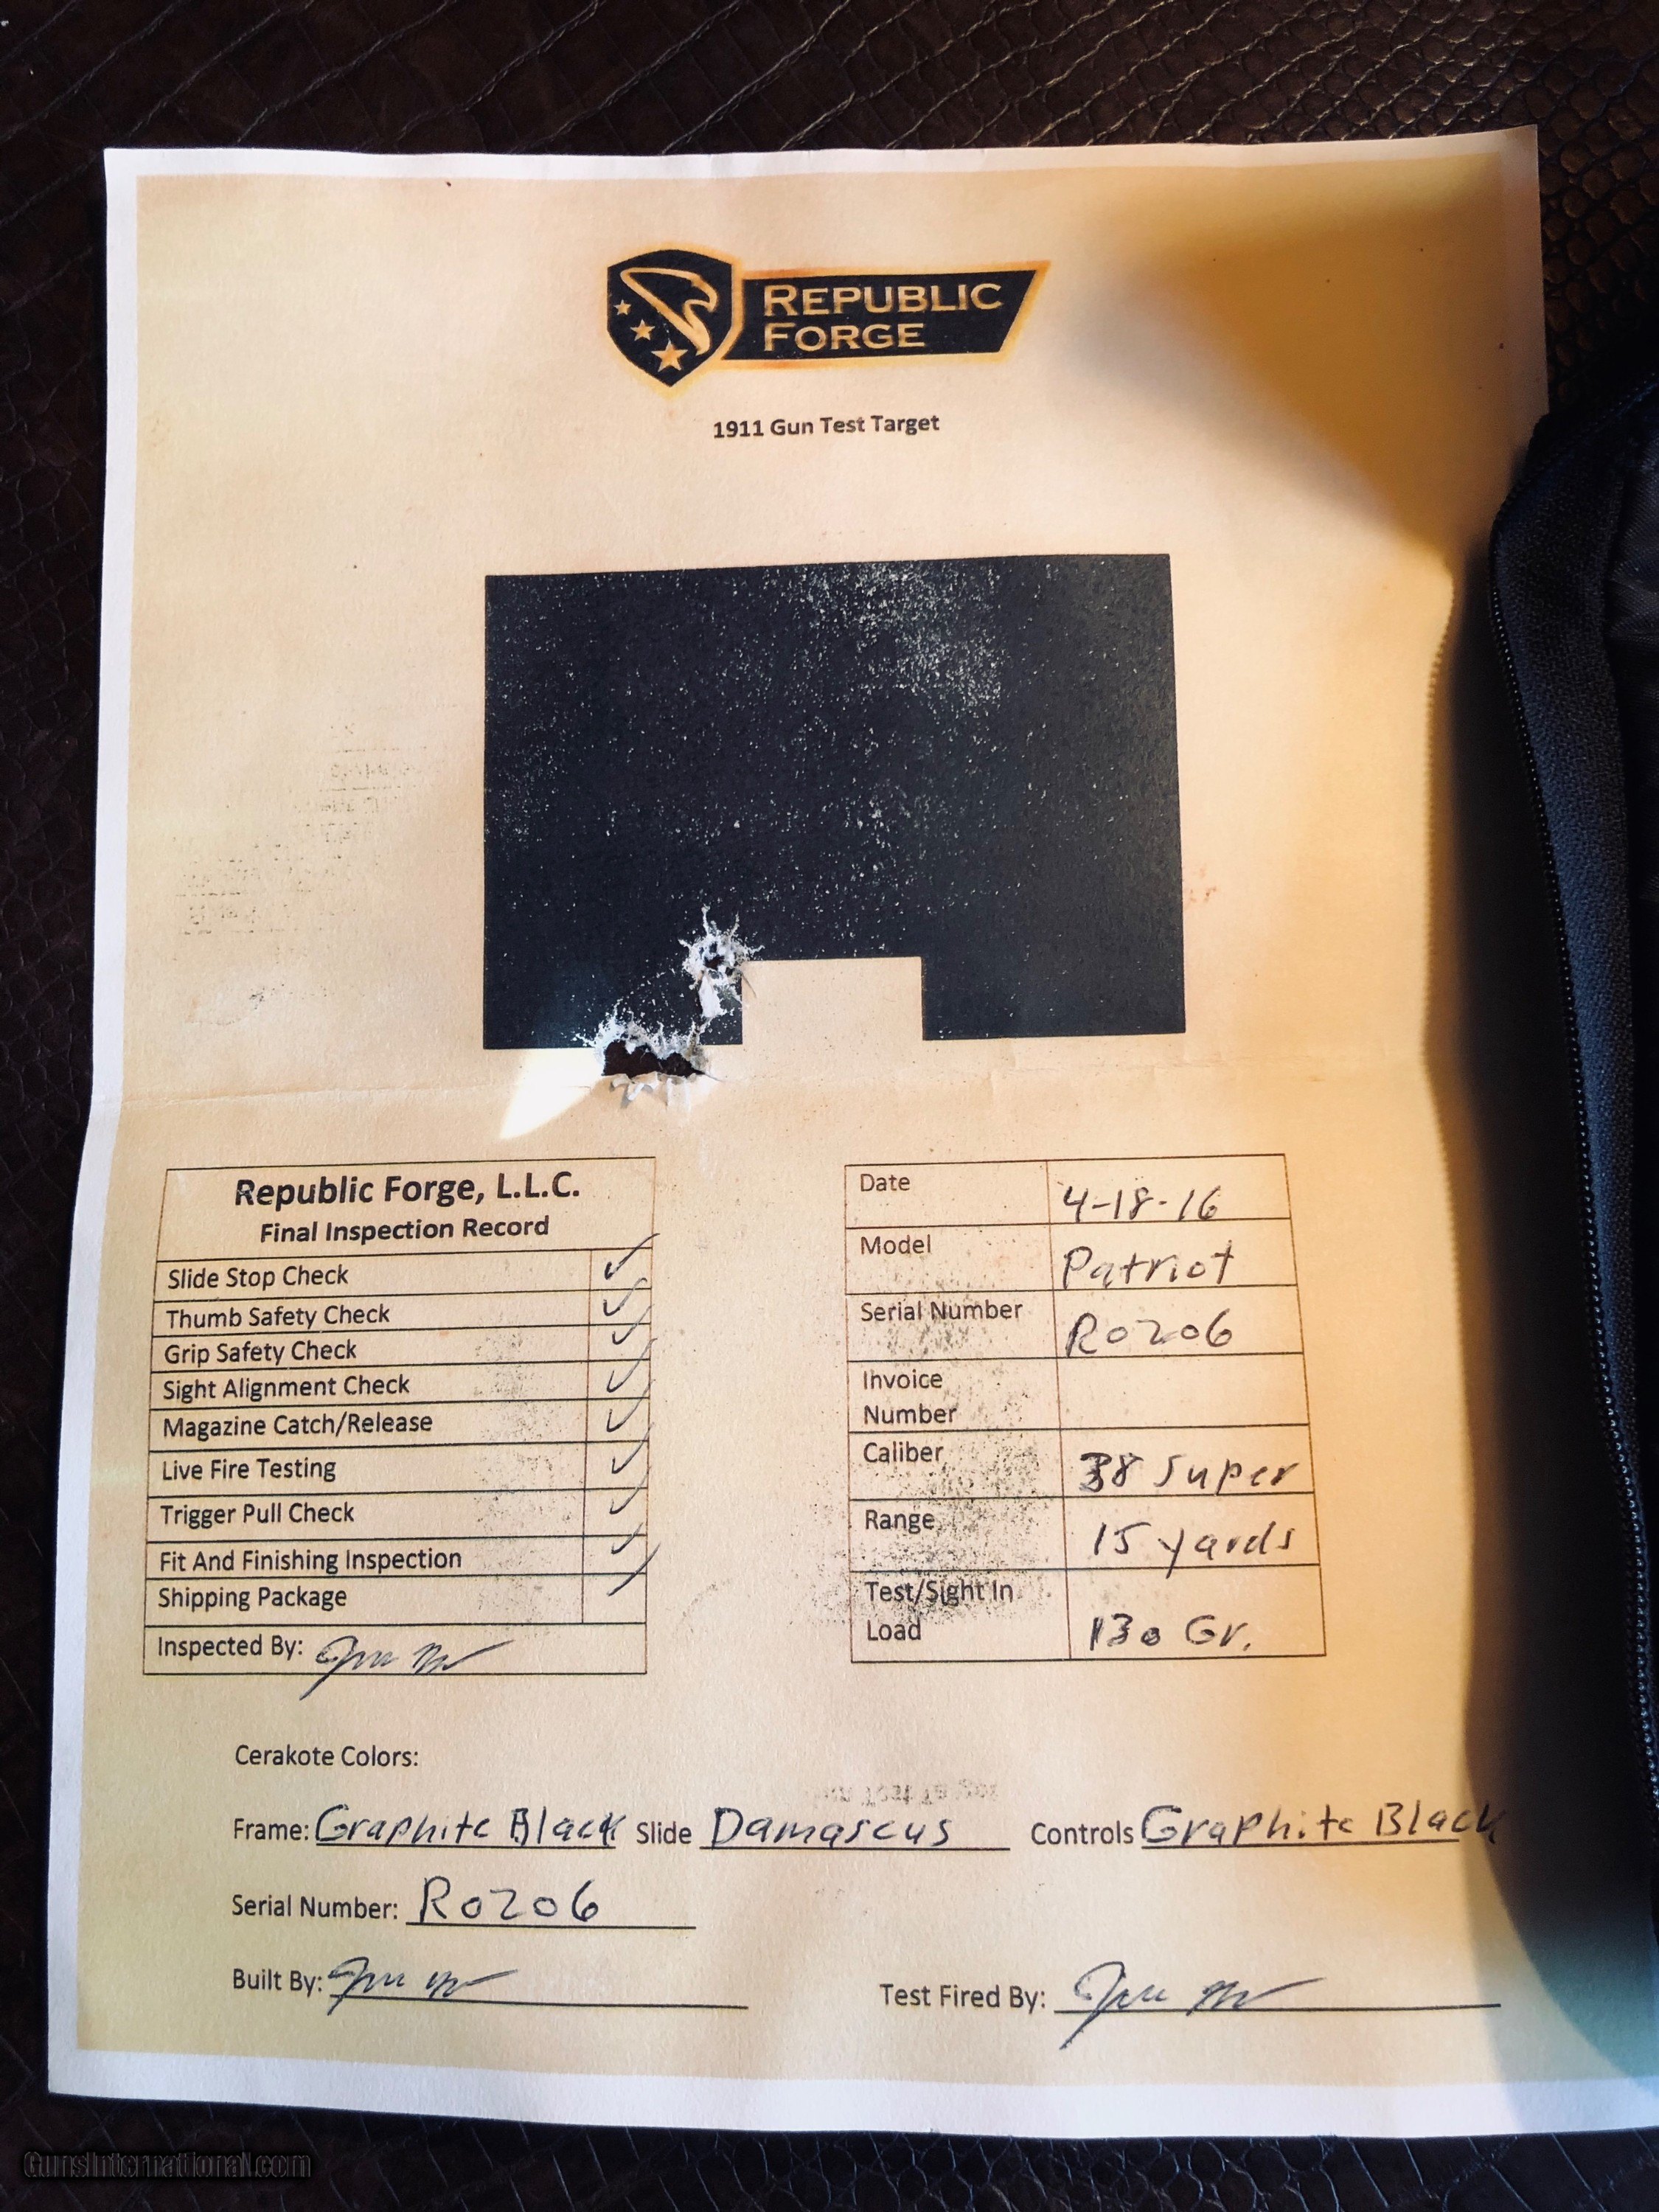 REPUBLIC
FORGE
1911 Gun Test Target
Republic Forge, L.L.C.
Final Inspection Record
Slide Stop Check
Thumb Safety Check
Grip Safety Check
Sight Alignment Check
Magazine Catch/Release
Live Fire Testing
Trigger Pull Check
Fit And Finishing Inspection
Shipping Package
Inspected By:
Date 4-18-16
Model Patriot
Serial Number R0206
Invoice
Number
Caliber 38 Super
Range 15 yards
Test/Sight In
Load 130 Gr.
Cerakote Colors:
Frame: Graphite Black Slide Damascus Controls Graphite Black
Serial Number: R0206
Built By: Test Fired By:
GunsInternational.com